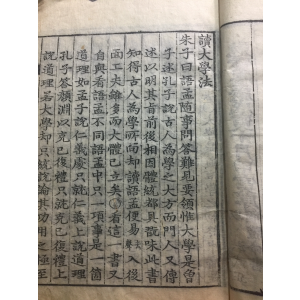 讀大學法
朱子曰語孟隨事問答難見要領惟大學是曾
子述孔子說古人為學之大方而門人又傳
述以明其旨前後相因體統都具翫味此書
知得古人為學所向却讀語孟便易入後
面工夫雖多而大體已立矣○看這一書又
自與看語孟不同語孟中只一項事是一箇
道理如孟子說仁義處只就仁義上說道理
孔子答顏淵以克己復禮只就克己復禮上
說道理若大學却只統說論其功用之極至